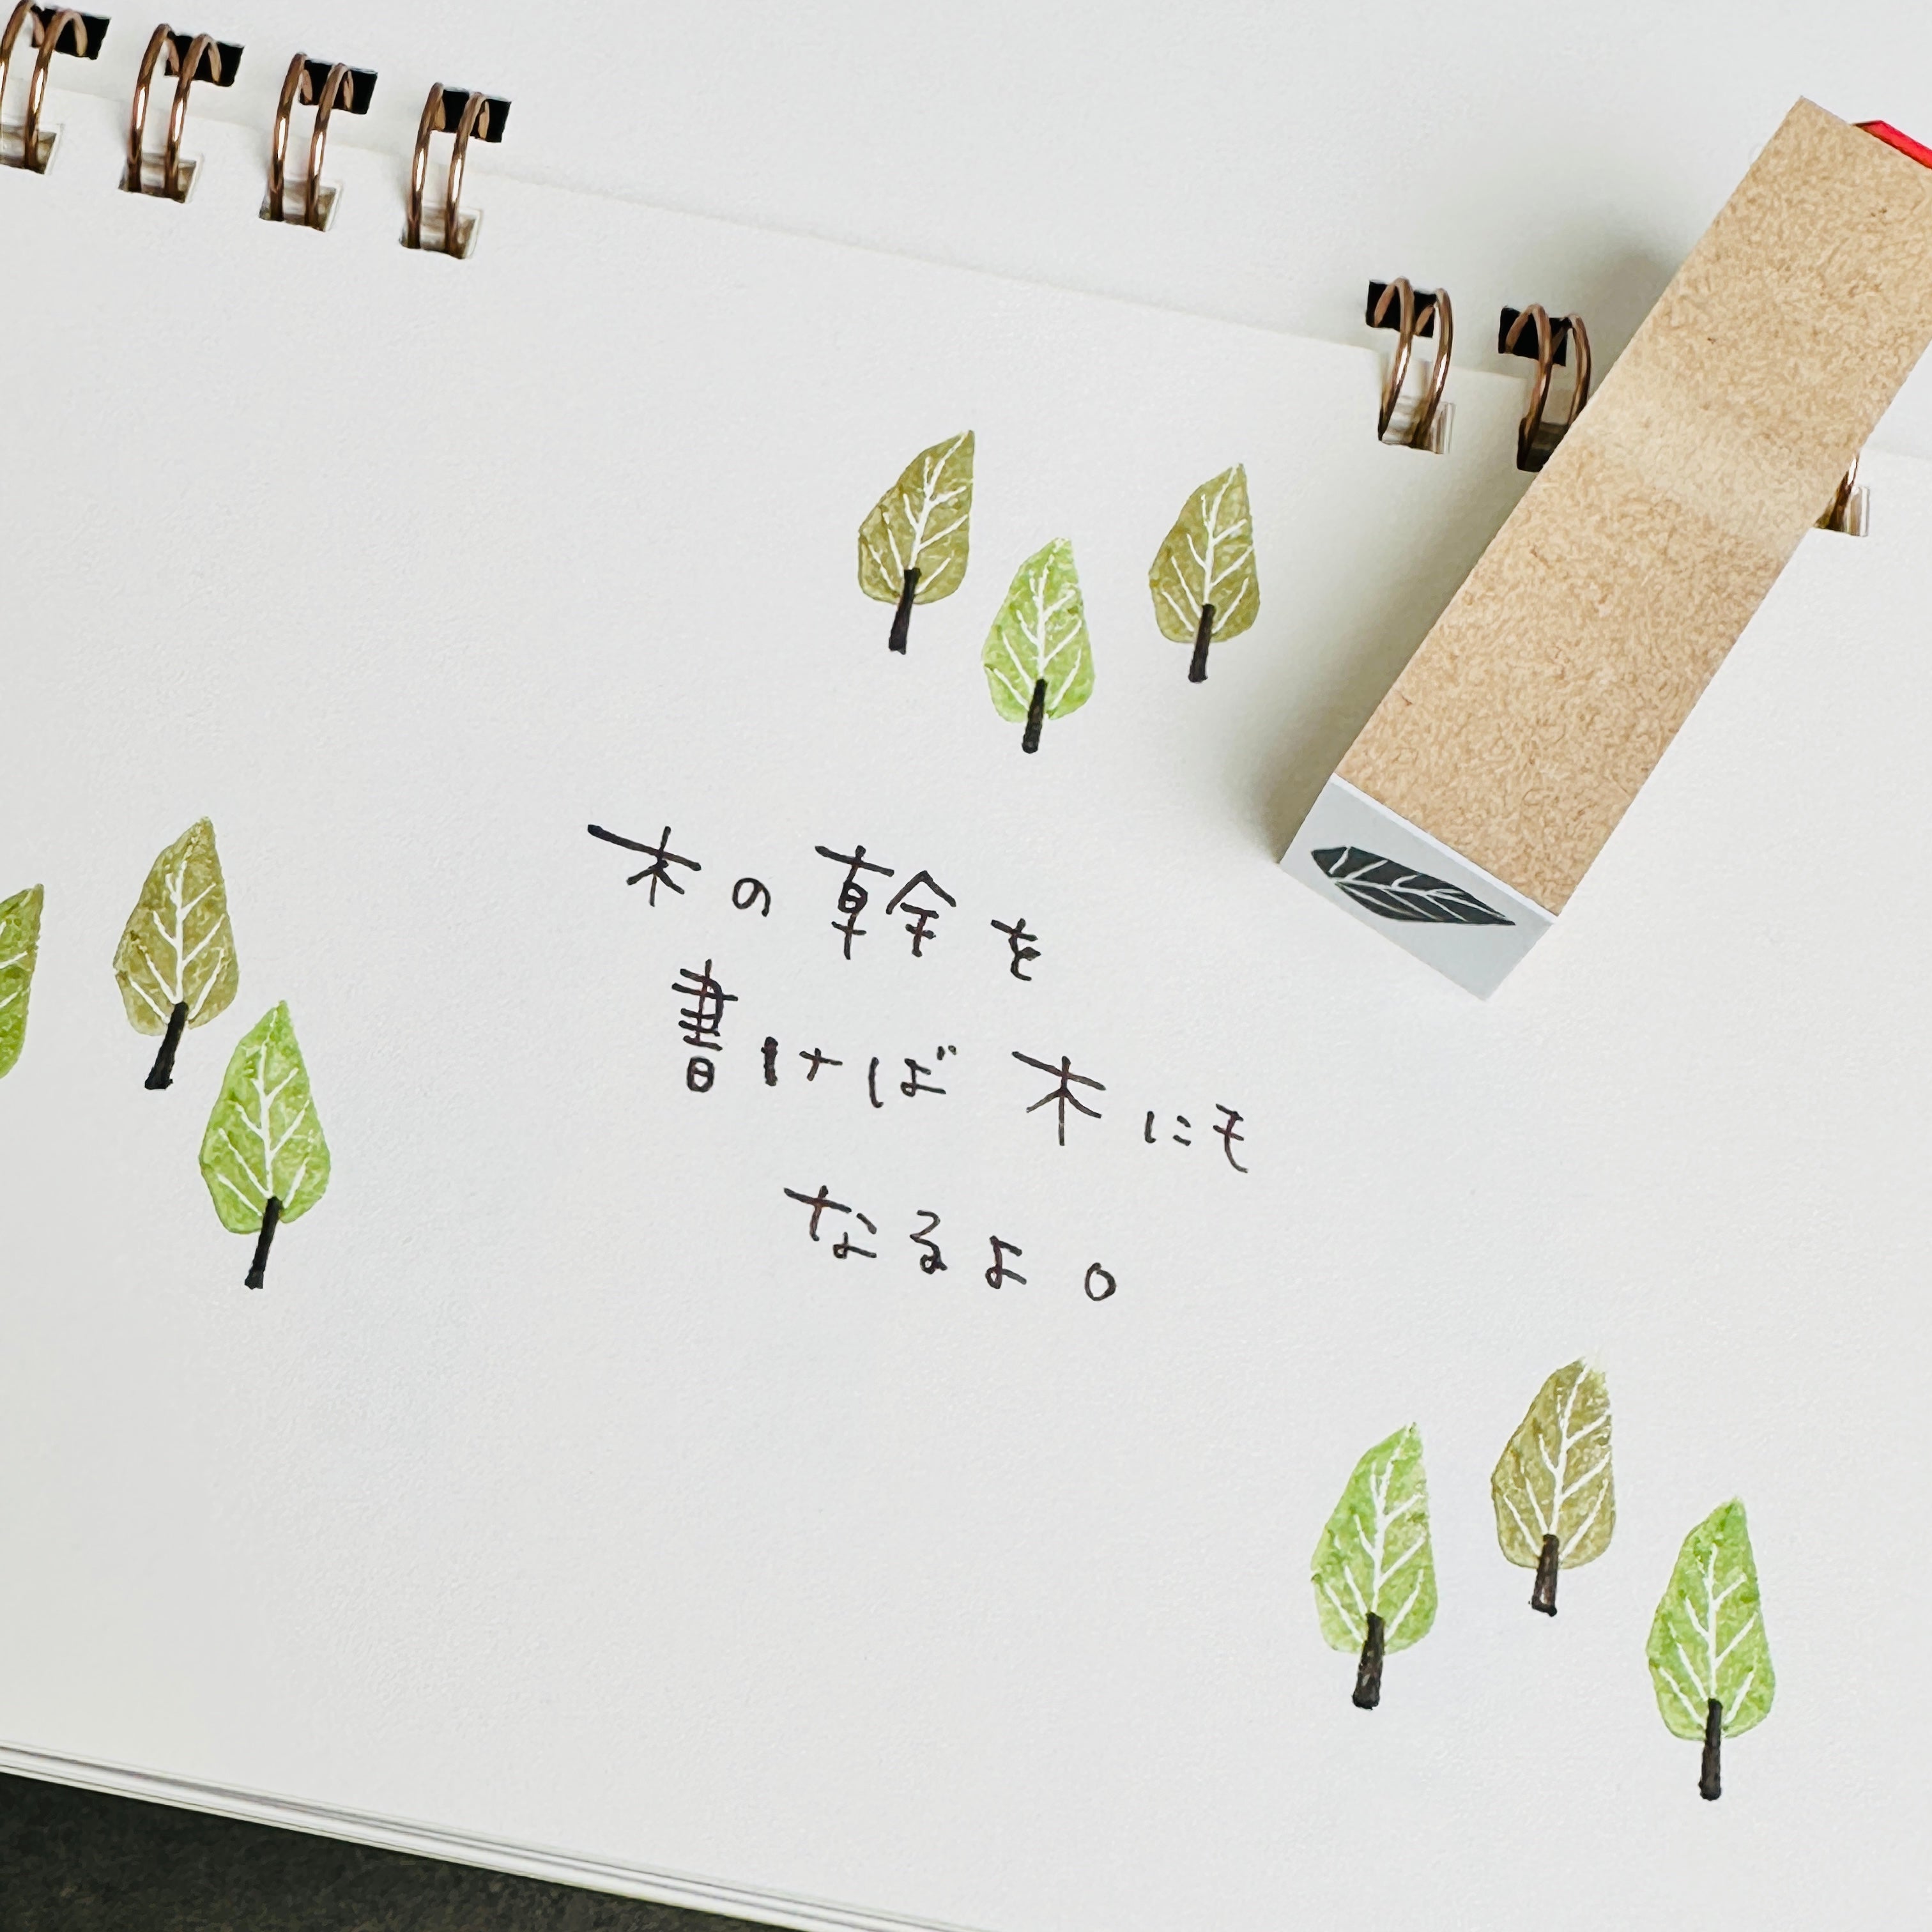 木の幹を
書けば木にも
なるよ。